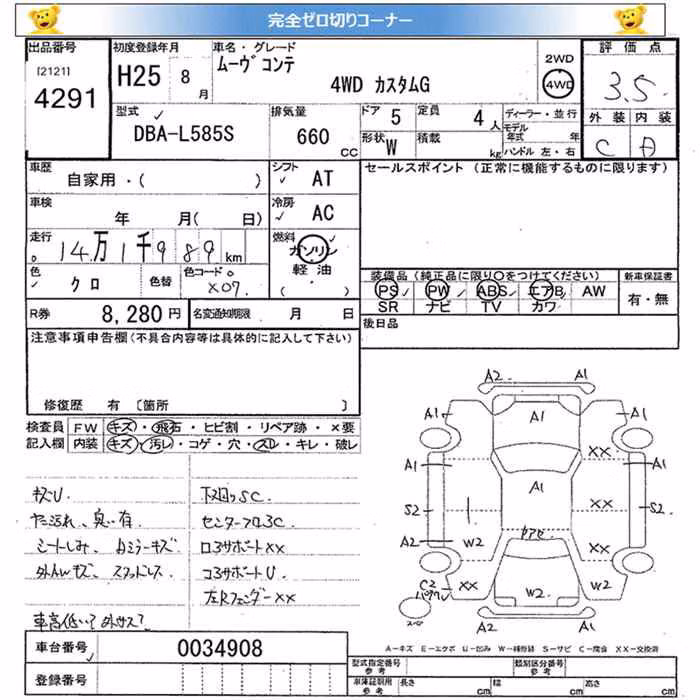 完全ゼロ切りコーナー
出品番号
[2121]
4291
初度登録年月
H25 8月
車名・グレード
ムーヴコンテ
4WD カスタムG
2WD
4WD
評価点
3.5
外装 内装
C A
型式
DBA-L585S
排気量
660 CC
ドア 5
定員 4人
形状 W
積載 kg
ディーラー・並行
モデル年式 年
ハンドル 左・右
車歴
自家用・( )
シフト AT
セールスポイント (正常に機能するものに限ります)
車検 年 月( 日)
冷房 AC
走行 14万1千989km
燃料 ガソリン
軽油
( ・ )
色 クロ
色替
色コード X07
装備品 (純正品に限り○をつけてください)
PS PW ABS エアB AW
SR ナビ TV カワ
新車保証書
有・無
R券 8,280円
名変通知期限 月 日
後日品
注意事項申告欄(不具合内容等は具体的に記入して下さい)
修復歴 有 〔箇所 〕
検査員記入欄
FW キズ・飛石・ヒビ割・リペア跡・×要
内装 キズ・汚レ・コゲ・穴・スレ・キレ・破レ
キズU
下回りSC
センターフロ3C
シートしみ、
ロ3サポートXX
スタッドレス
コ3サポートU
左Rフェンダー XX
A2 A1
A1 A1 A1
XX
A1 A1 A1
XX
S2 S2
A2 W2 XX
C2 XX W2 W2
A2 A1
A－キズ E－エクボ U－凹み W－補修跡 S－サビ C－腐食 XX－交換済
車台番号 0034908
登録番号
型式指定番号 参考
類別区分番号 参考
車庫証明用 参考
長さ cm
幅 cm
高さ cm